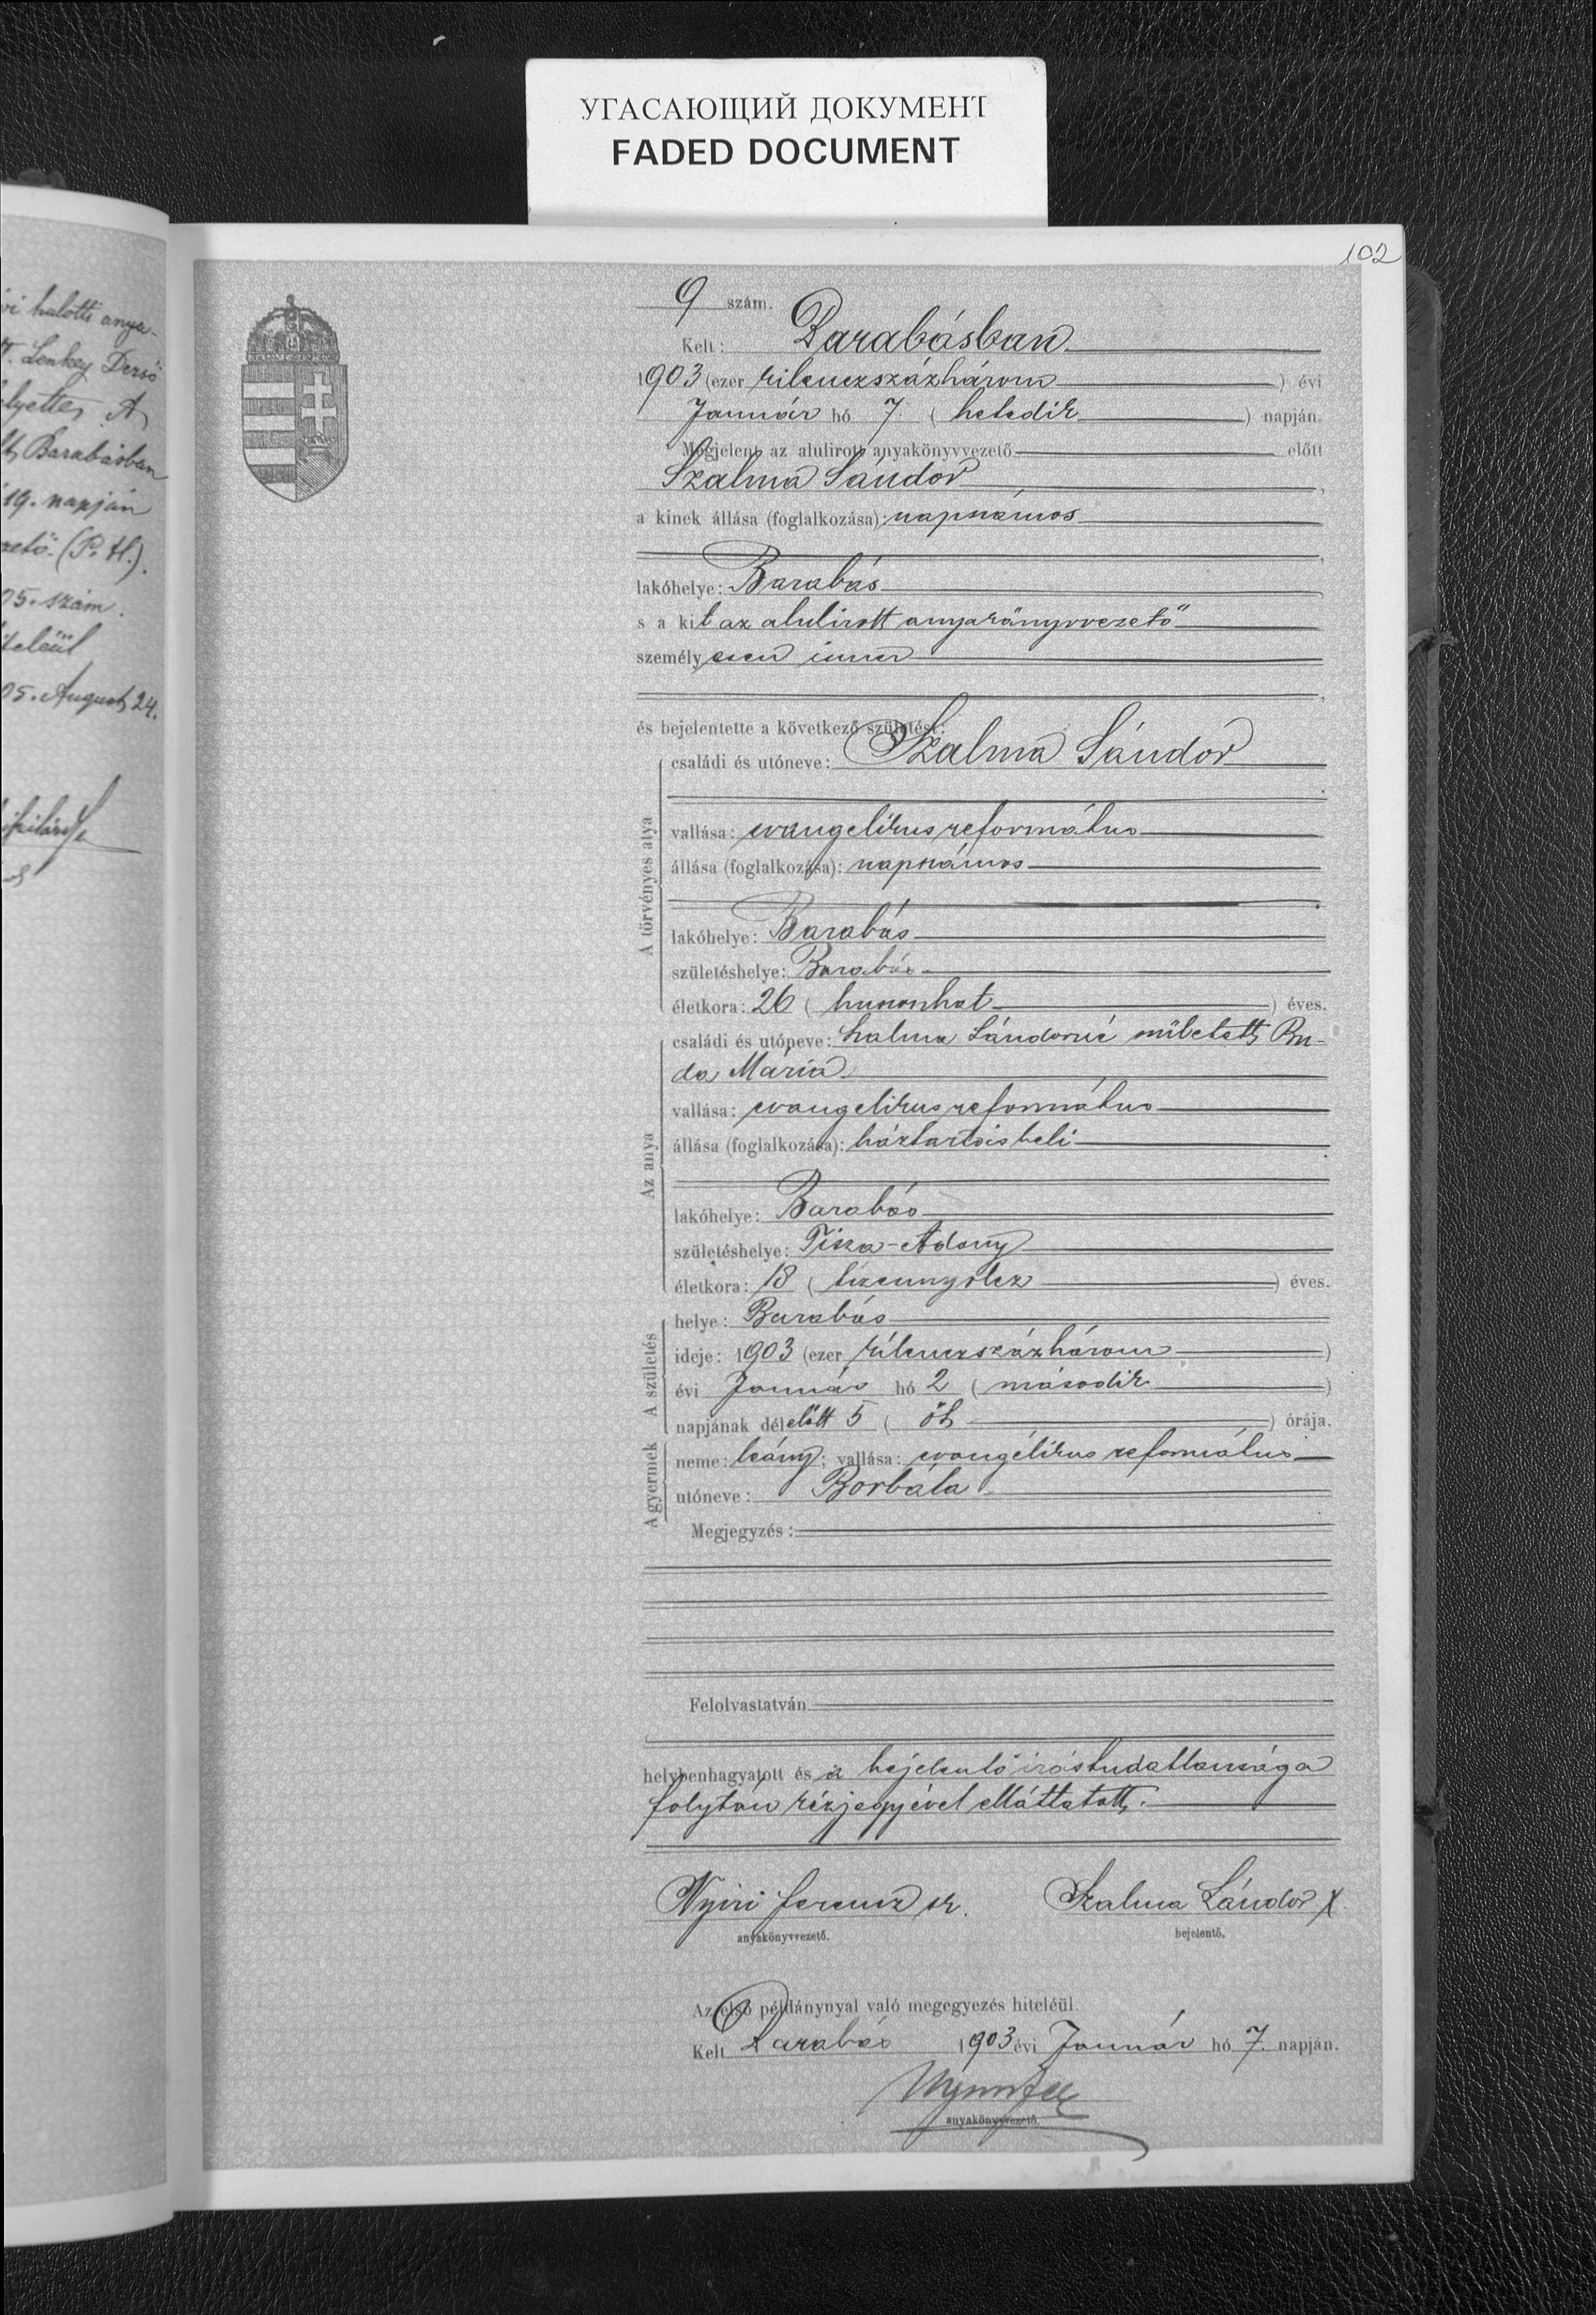 УГАСАЮЩИЙ ДОКУМЕНТ
FADED DOCUMENT
102
vi halotti anya-
Lenkey Dezső
lyettes A
Barabásban
19. napján
(P. H.).
05. szám.
iteléül
05. August 24.
9 szám.
Kelt: Barabásban
1903 (ezer kilenczszázhárom) évi
Január hó 7. (hetedik) napján.
Megjelent az alulirott anyakönyvvezető előtt
Szalma Sándor,
a kinek állása (foglalkozása): napszámos
,
lakóhelye: Barabás,
s a kit az alulirott anyakönyvvezető
személyesen ismer
,
és bejelentette a következő születést:
A törvényes atya
családi és utóneve: Szalma Sándor
vallása: evangelikus református
állása (foglalkozása): napszámos
lakóhelye: Barabás
születéshelye: Barabás
életkora: 26 (huszonhat) éves.
Az anya
családi és utóneve: Szalma Sándorné született Bu-
da Mária
vallása: evangelikus református
állása (foglalkozása): háztartásbeli
lakóhelye: Barabás
születéshelye: Tisza-Adony
életkora: 18 (tizennyolcz) éves.
A születés
helye: Barabás
ideje: 1903 (ezer kilenczszázhárom)
évi Január hó 2 (második)
napjának délelőtt 5 (öt) órája.
A gyermek
neme: leány; vallása: evangélikus református
utóneve: Borbála
Megjegyzés:
Felolvastatván
helybenhagyatott és a bejelentő irástudatlansága
folytán kézjegyével elláttatott.
Nyiri Ferencz sk. Szalma Sándor X
anyakönyvvezető. bejelentő.
Az első példánynyal való megegyezés hiteléül.
Kelt Barabás 1903 évi Január hó 7. napján.
anyakönyvvezető.